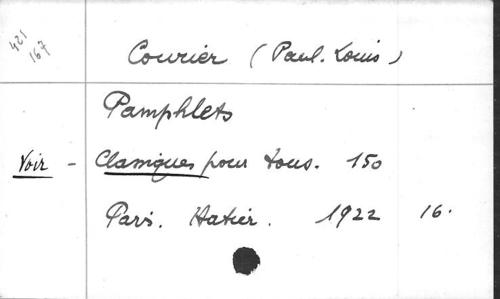 421
167
Courier (Paul. Louis)
Pamphlets
Voir - Classiques pour tous. 150
Paris. Hatier. 1922 16.